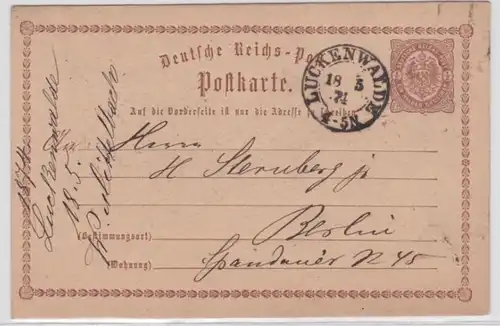 Deutsche Reichs-Post
Postkarte.
Auf die Vorderseite ist nur die Adresse zu schreiben
LUCKENWALDE
18 5
74
4-5N
An Herrn
H Sternberg jr
(Bestimmungsort) Berlin
(Wohnung) Spandauer N 45
1874
Luckenwalde
18.5.